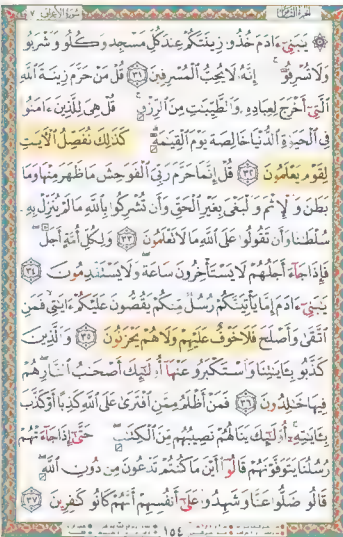 سورة الأعراف ٧
۞ يَبَنِىٓ ءَادَمَ خُذُو زِينَتَكُمْ عِندَ كُلِّ مَسْجِدٍ وَكُلُو وَشْرَبُو
وَلَا تُسْرِفُو إِنَّهُ لَا يُحِبُّ الْمُسْرِفِينَ ٣١ قُلْ مَنْ حَرَّمَ زِينَةَ اللَّهِ
الَّتِىٓ أَخْرَجَ لِعِبَادِهِ وَالطَّيِّبَتِ مِنَ الرِّزْقِ قُلْ هِىَ لِلَّذِينَ ءَامَنُو
فِى الْحَيَوةِ الدُّنْيَا خَالِصَةً يَوْمَ الْقِيَمَةِ كَذَلِكَ نُفَصِّلُ الْأَيَتِ
لِقَوْمٍ يَعْلَمُونَ ٣٢ قُلْ إِنَّمَا حَرَّمَ رَبِّىَ الْفَوَحِشَ مَا ظَهَرَ مِنْهَا وَمَا
بَطَنَ وَلْإِثْمَ وَلْبَغْىَ بِغَيْرِ الْحَقِّ وَأَن تُشْرِكُوا بِاللَّهِ مَا لَمْ يُنَزِّلْ بِهِ
سُلْطَنًا وَأَن تَقُولُوا عَلَى اللَّهِ مَا لَا تَعْلَمُونَ ٣٣ وَلِكُلِّ أُمَّةٍ أَجَلٌ
فَإِذَا جَآءَ أَجَلُهُمْ لَا يَسْتَأْخِرُونَ سَاعَةً وَلَا يَسْتَقْدِمُونَ ٣٤
يَبَنِىٓ ءَادَمَ إِمَّا يَأْتِيَنَّكُمْ رُسُلٌ مِّنكُمْ يَقُصُّونَ عَلَيْكُمْ ءَايَتِى فَمَنِ
اتَّقَى وَأَصْلَحَ فَلَا خَوْفٌ عَلَيْهِمْ وَلَا هُمْ يَحْزَنُونَ ٣٥ وَالَّذِينَ
كَذَّبُو بِـَٔايَتِنَا وَاسْتَكْبَرُو عَنْهَآ أُولَٓئِكَ أَصْحَبُ النَّارِ هُمْ
فِيهَا خَلِدُونَ ٣٦ فَمَنْ أَظْلَمُ مِمَّنِ افْتَرَى عَلَى اللَّهِ كَذِبًا أَوْ كَذَّبَ
بِـَٔايَتِهِ أُولَٓئِكَ يَنَالُهُمْ نَصِيبُهُم مِّنَ الْكِتَبِ حَتَّىٓ إِذَا جَآءَتْهُمْ
رُسُلُنَا يَتَوَفَّوْنَهُمْ قَالُوٓا أَيْنَ مَا كُنتُمْ تَدْعُونَ مِن دُونِ اللَّهِ
قَالُو ضَلُّو عَنَّا وَشَهِدُو عَلَىٓ أَنفُسِهِمْ أَنَّهُمْ كَانُو كَفِرِينَ ٣٧
١٥٤